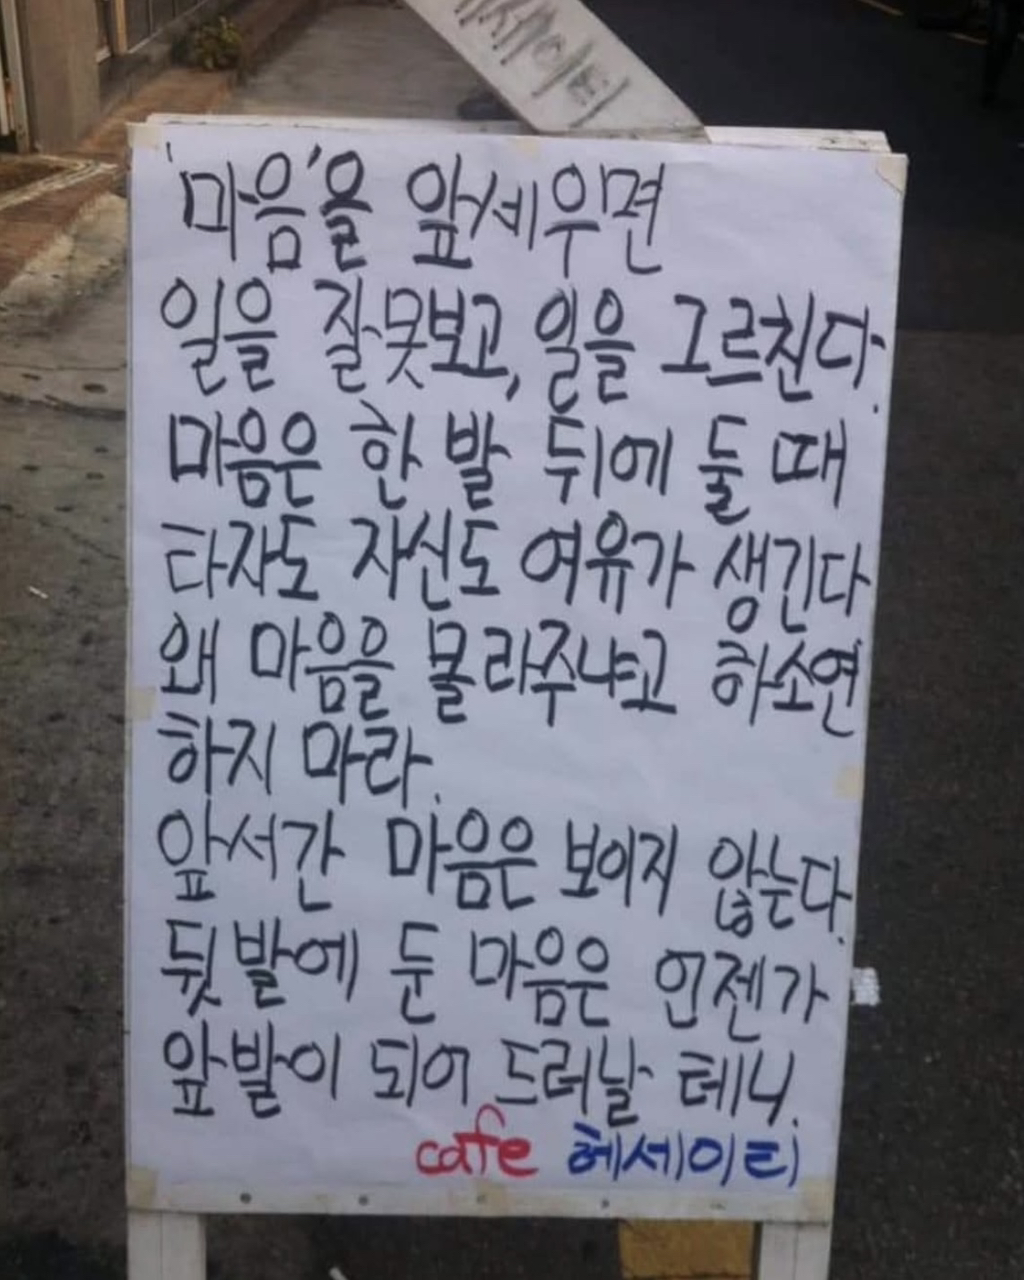 '마음'을 앞세우면
일을 잘못보고, 일을 그르친다.
마음은 한 발 뒤에 둘 때
타자도 자신도 여유가 생긴다
왜 마음을 몰라주냐고 하소연
하지 마라.
앞서간 마음은 보이지 않는다.
뒷발에 둔 마음은 언젠가
앞발이 되어 드러날 테니.
cafe 헤세이티